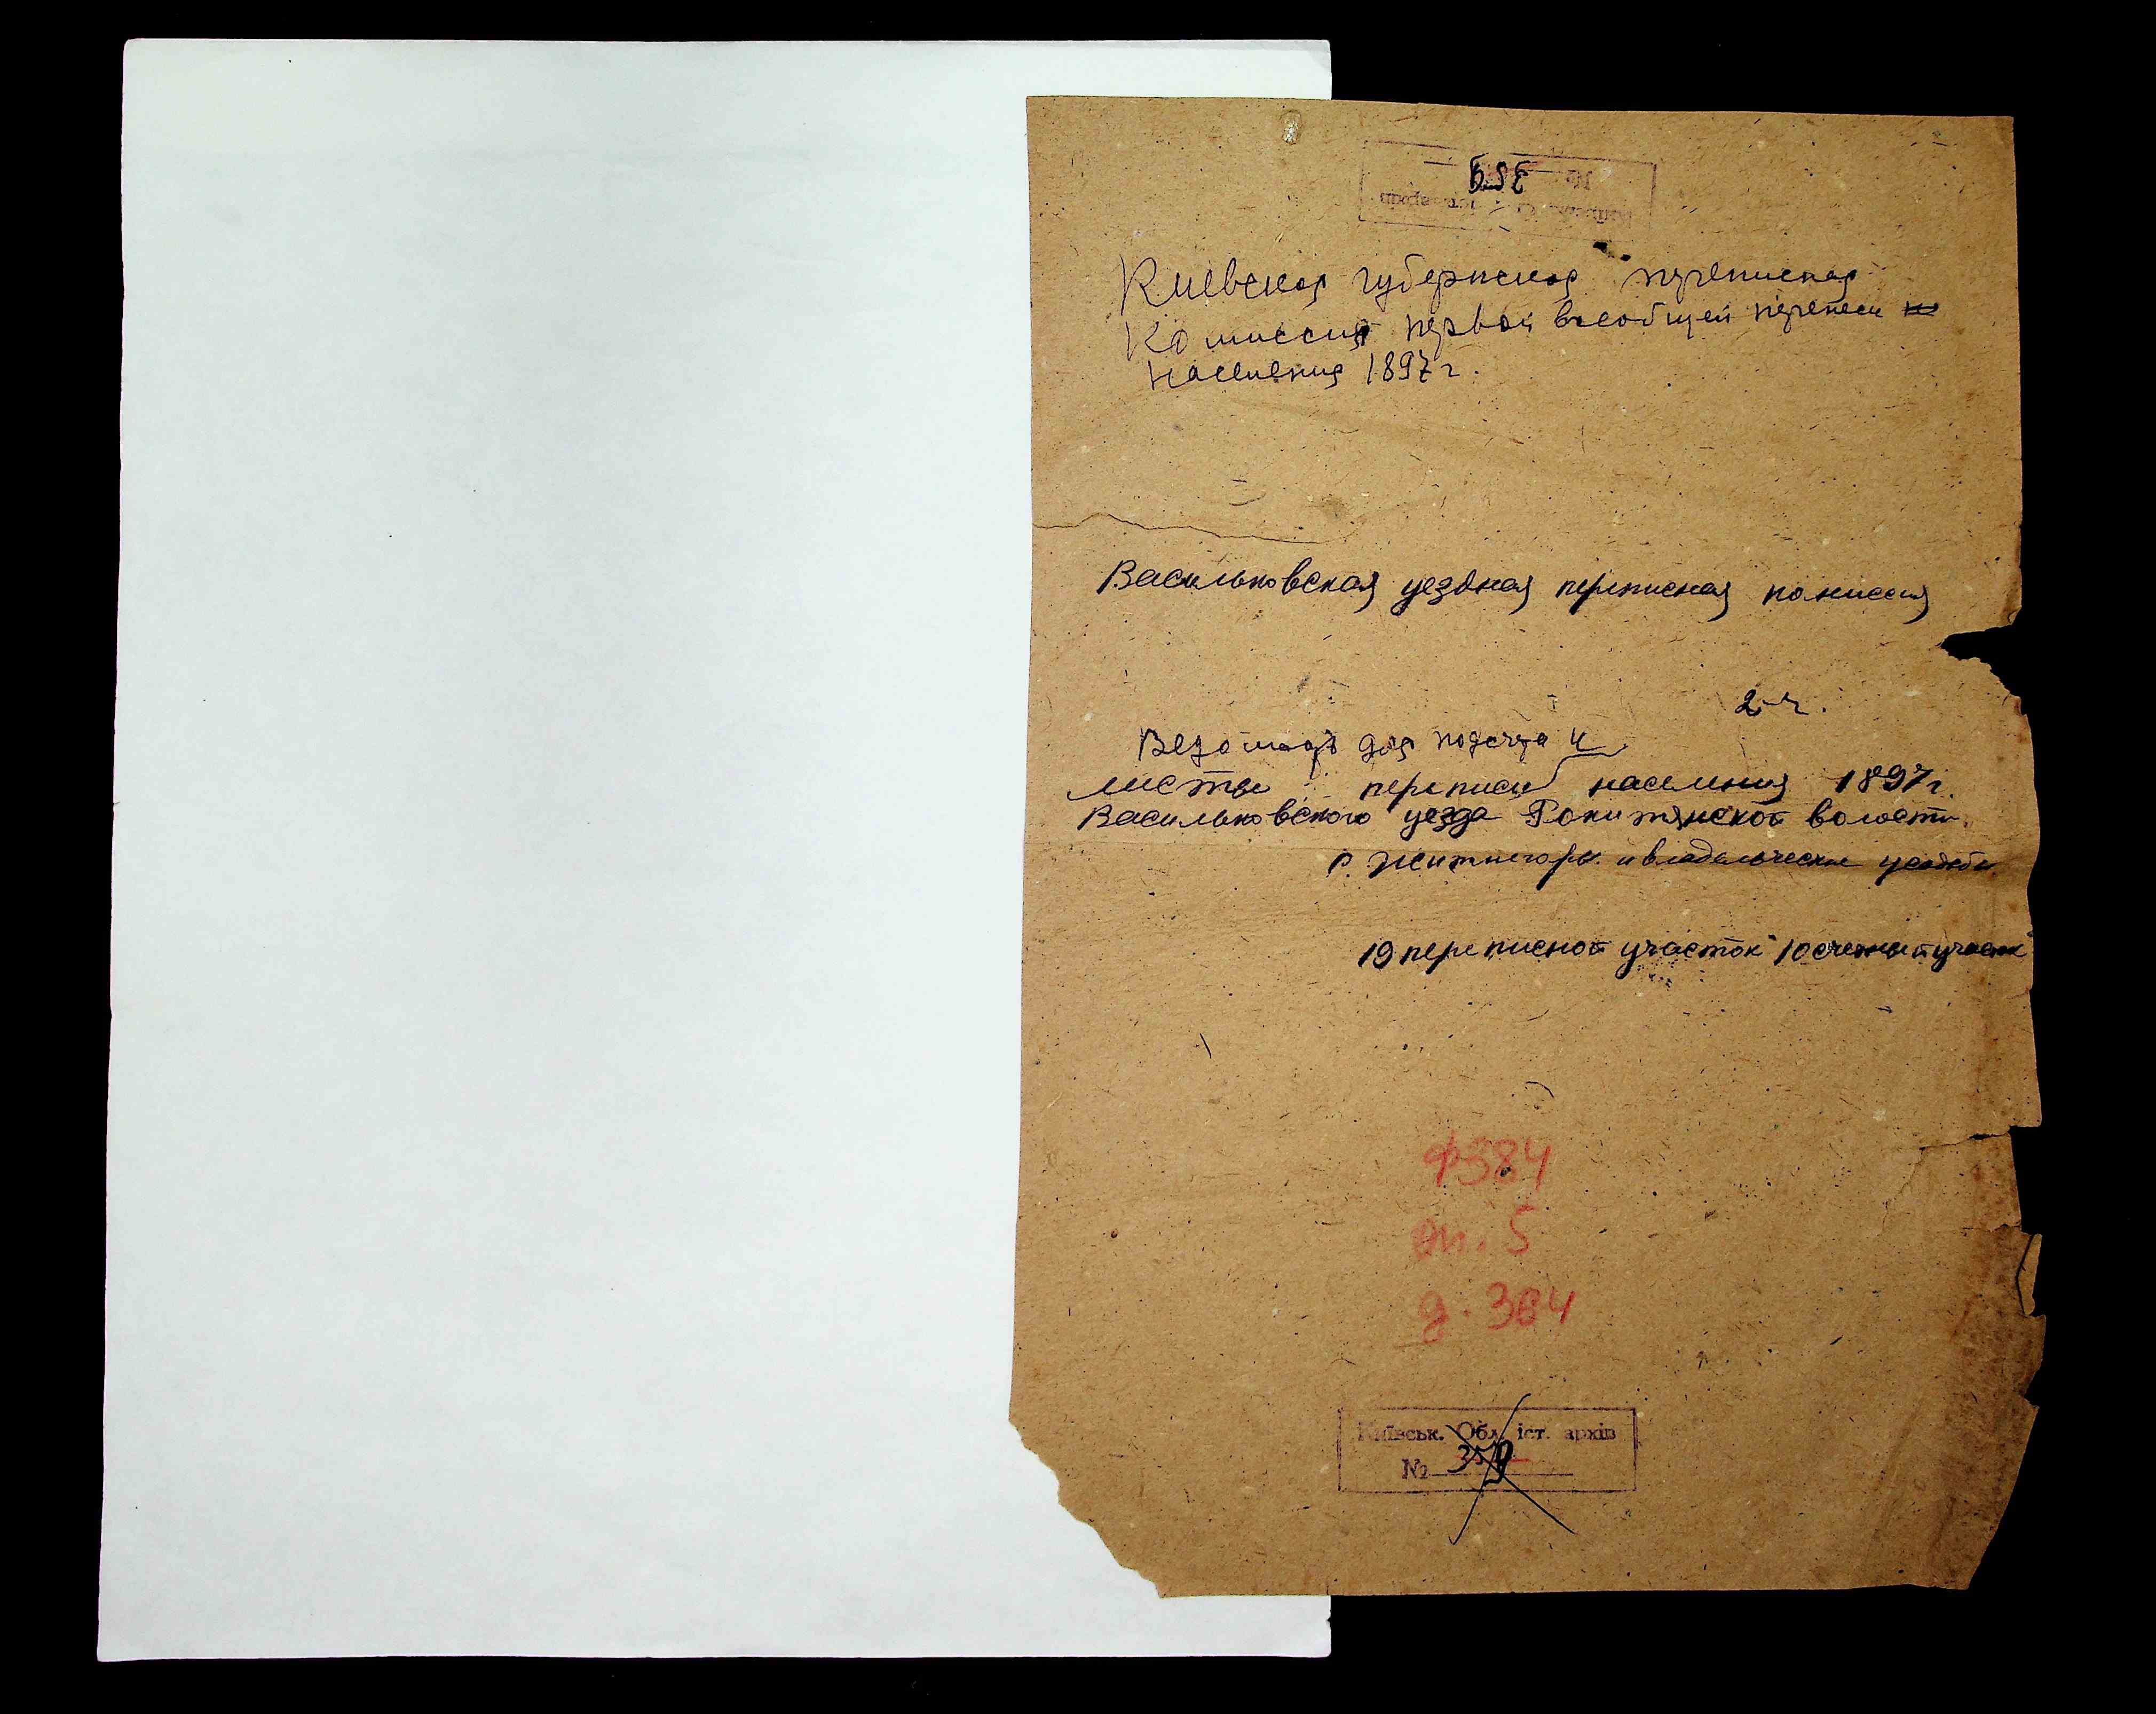 Киевская губернская переписная
Комиссия первой всеобщей переписи
населения 1897 г.
Васильковская уездная переписная комиссия
2-ч.
Ведомость для подсчета и
листы переписи населения 1897 г.
Васильковского уезда Рокитянской волости
с. Житнегоры и владельческие усадьбы
19 переписной участок 10 счетный участок
ф 384
оп. 5
д. 364
Київськ. Обл. іст. архів
№